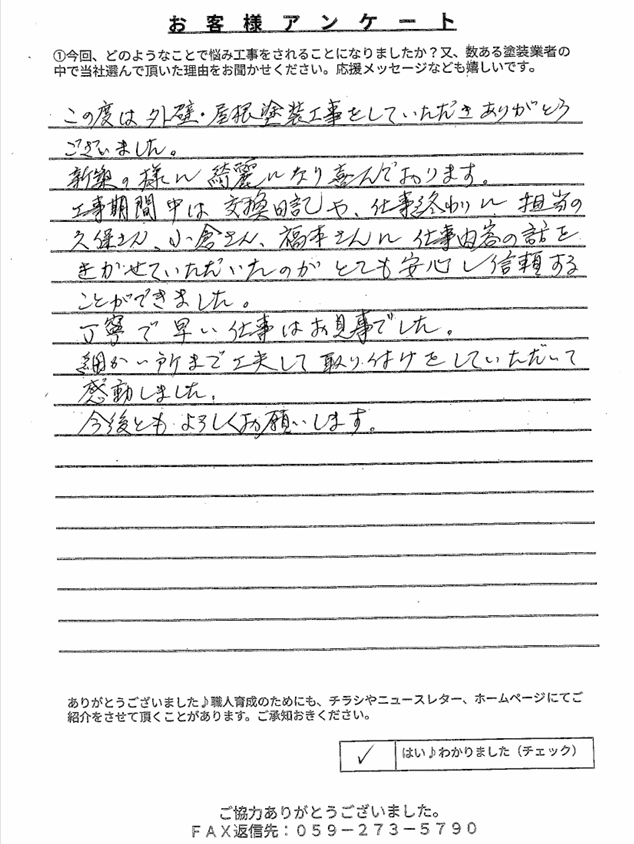 お客様アンケート
①今回、どのようなことで悩み工事をされることになりましたか？又、数ある塗装業者の
中で当社選んで頂いた理由をお聞かせください。応援メッセージなども嬉しいです。
この度は外壁・屋根塗装工事をしていただきありがとう
ございました。
新築の様に綺麗になり喜んでおります。
工事期間中は交換日記や、仕事終わりに担当の
久保さん、小倉さん、福本さんに仕事内容の話を
きかせていただいたのがとても安心し信頼する
ことができました。
丁寧で早い仕事はお見事でした。
細かい所まで工夫して取り付けをしていただいて
感動しました。
今後ともよろしくお願いします。
ありがとうございました♪職人育成のためにも、チラシやニュースレター、ホームページにてご
紹介をさせて頂くことがあります。ご承知おきください。
✓ はい♪わかりました（チェック）
ご協力ありがとうございました。
ＦＡＸ返信先：０５９－２７３－５７９０